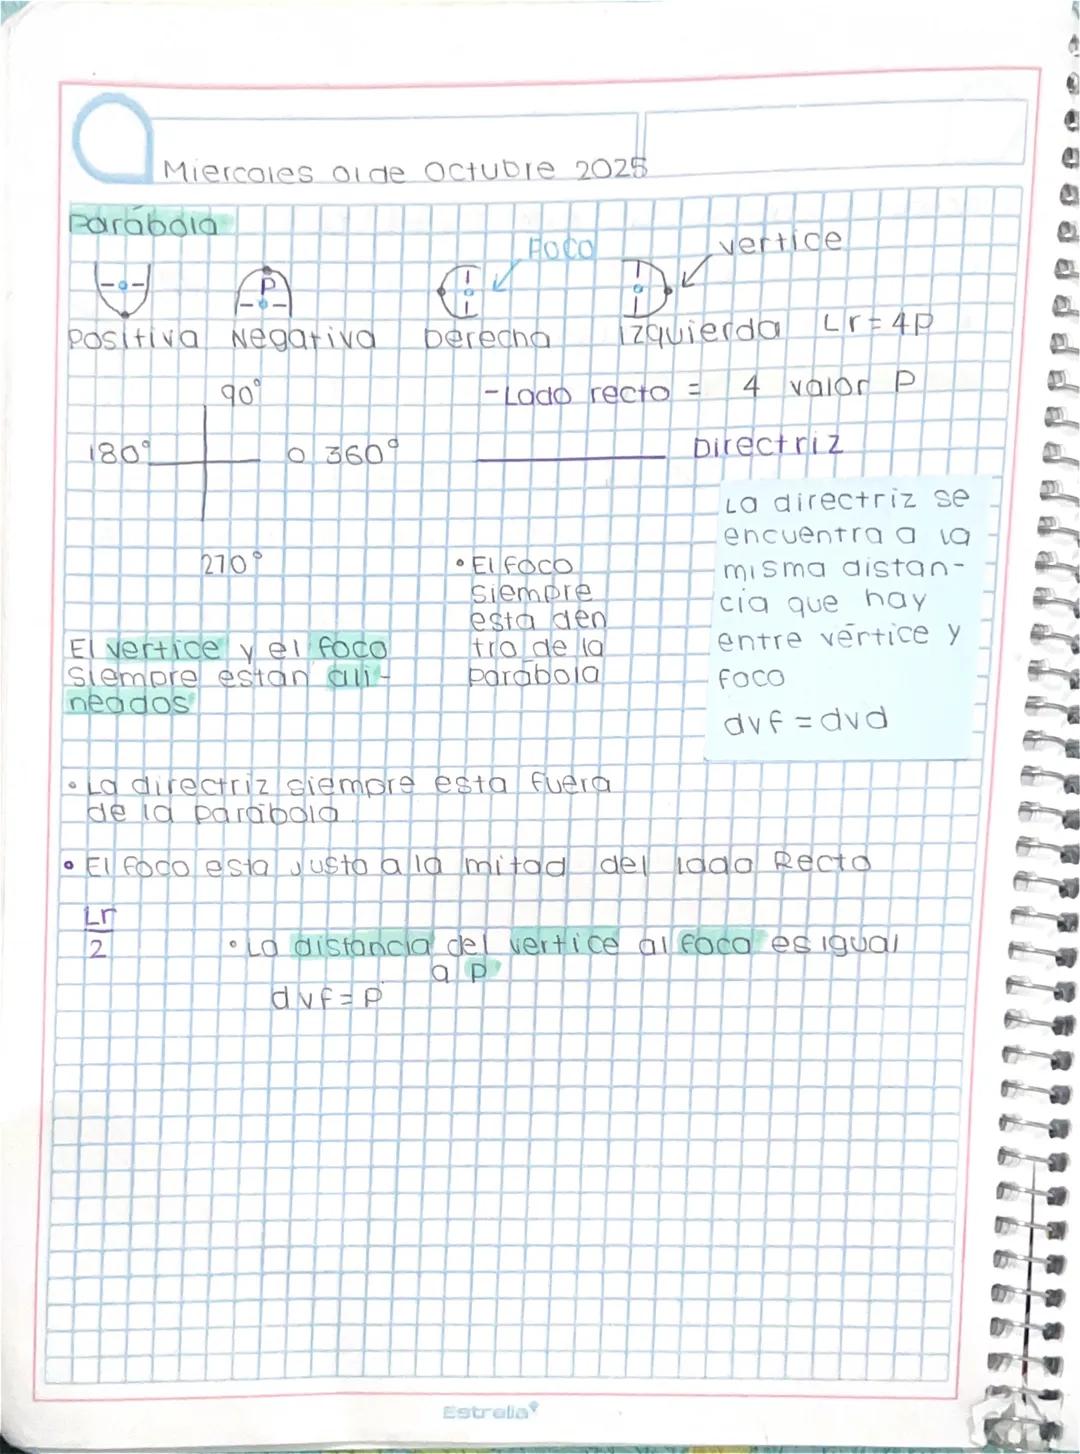 Miercoles 01 de Octubre 2025
Parábola
Foco
vertice
P
Positiva Negativa Derecha Izquierda Lr=4P
90°
-Lado recto = 4 valor P
180° 0 360°
Directriz
270°
La directriz se
encuentra a la
misma distan-
cia que hay
entre vértice y
foco
dvf = dvd
• El foco
siempre
esta den
tro de la
parábola
El vertice y el foco
Siempre estan ali-
neados
• La directriz siempre esta fuera
de la parábola
• El foco esta justo a la mitad del lado Recto
Lr
2
• La distancia del vertice al foco es igual
a P
dvf = P
Estrella